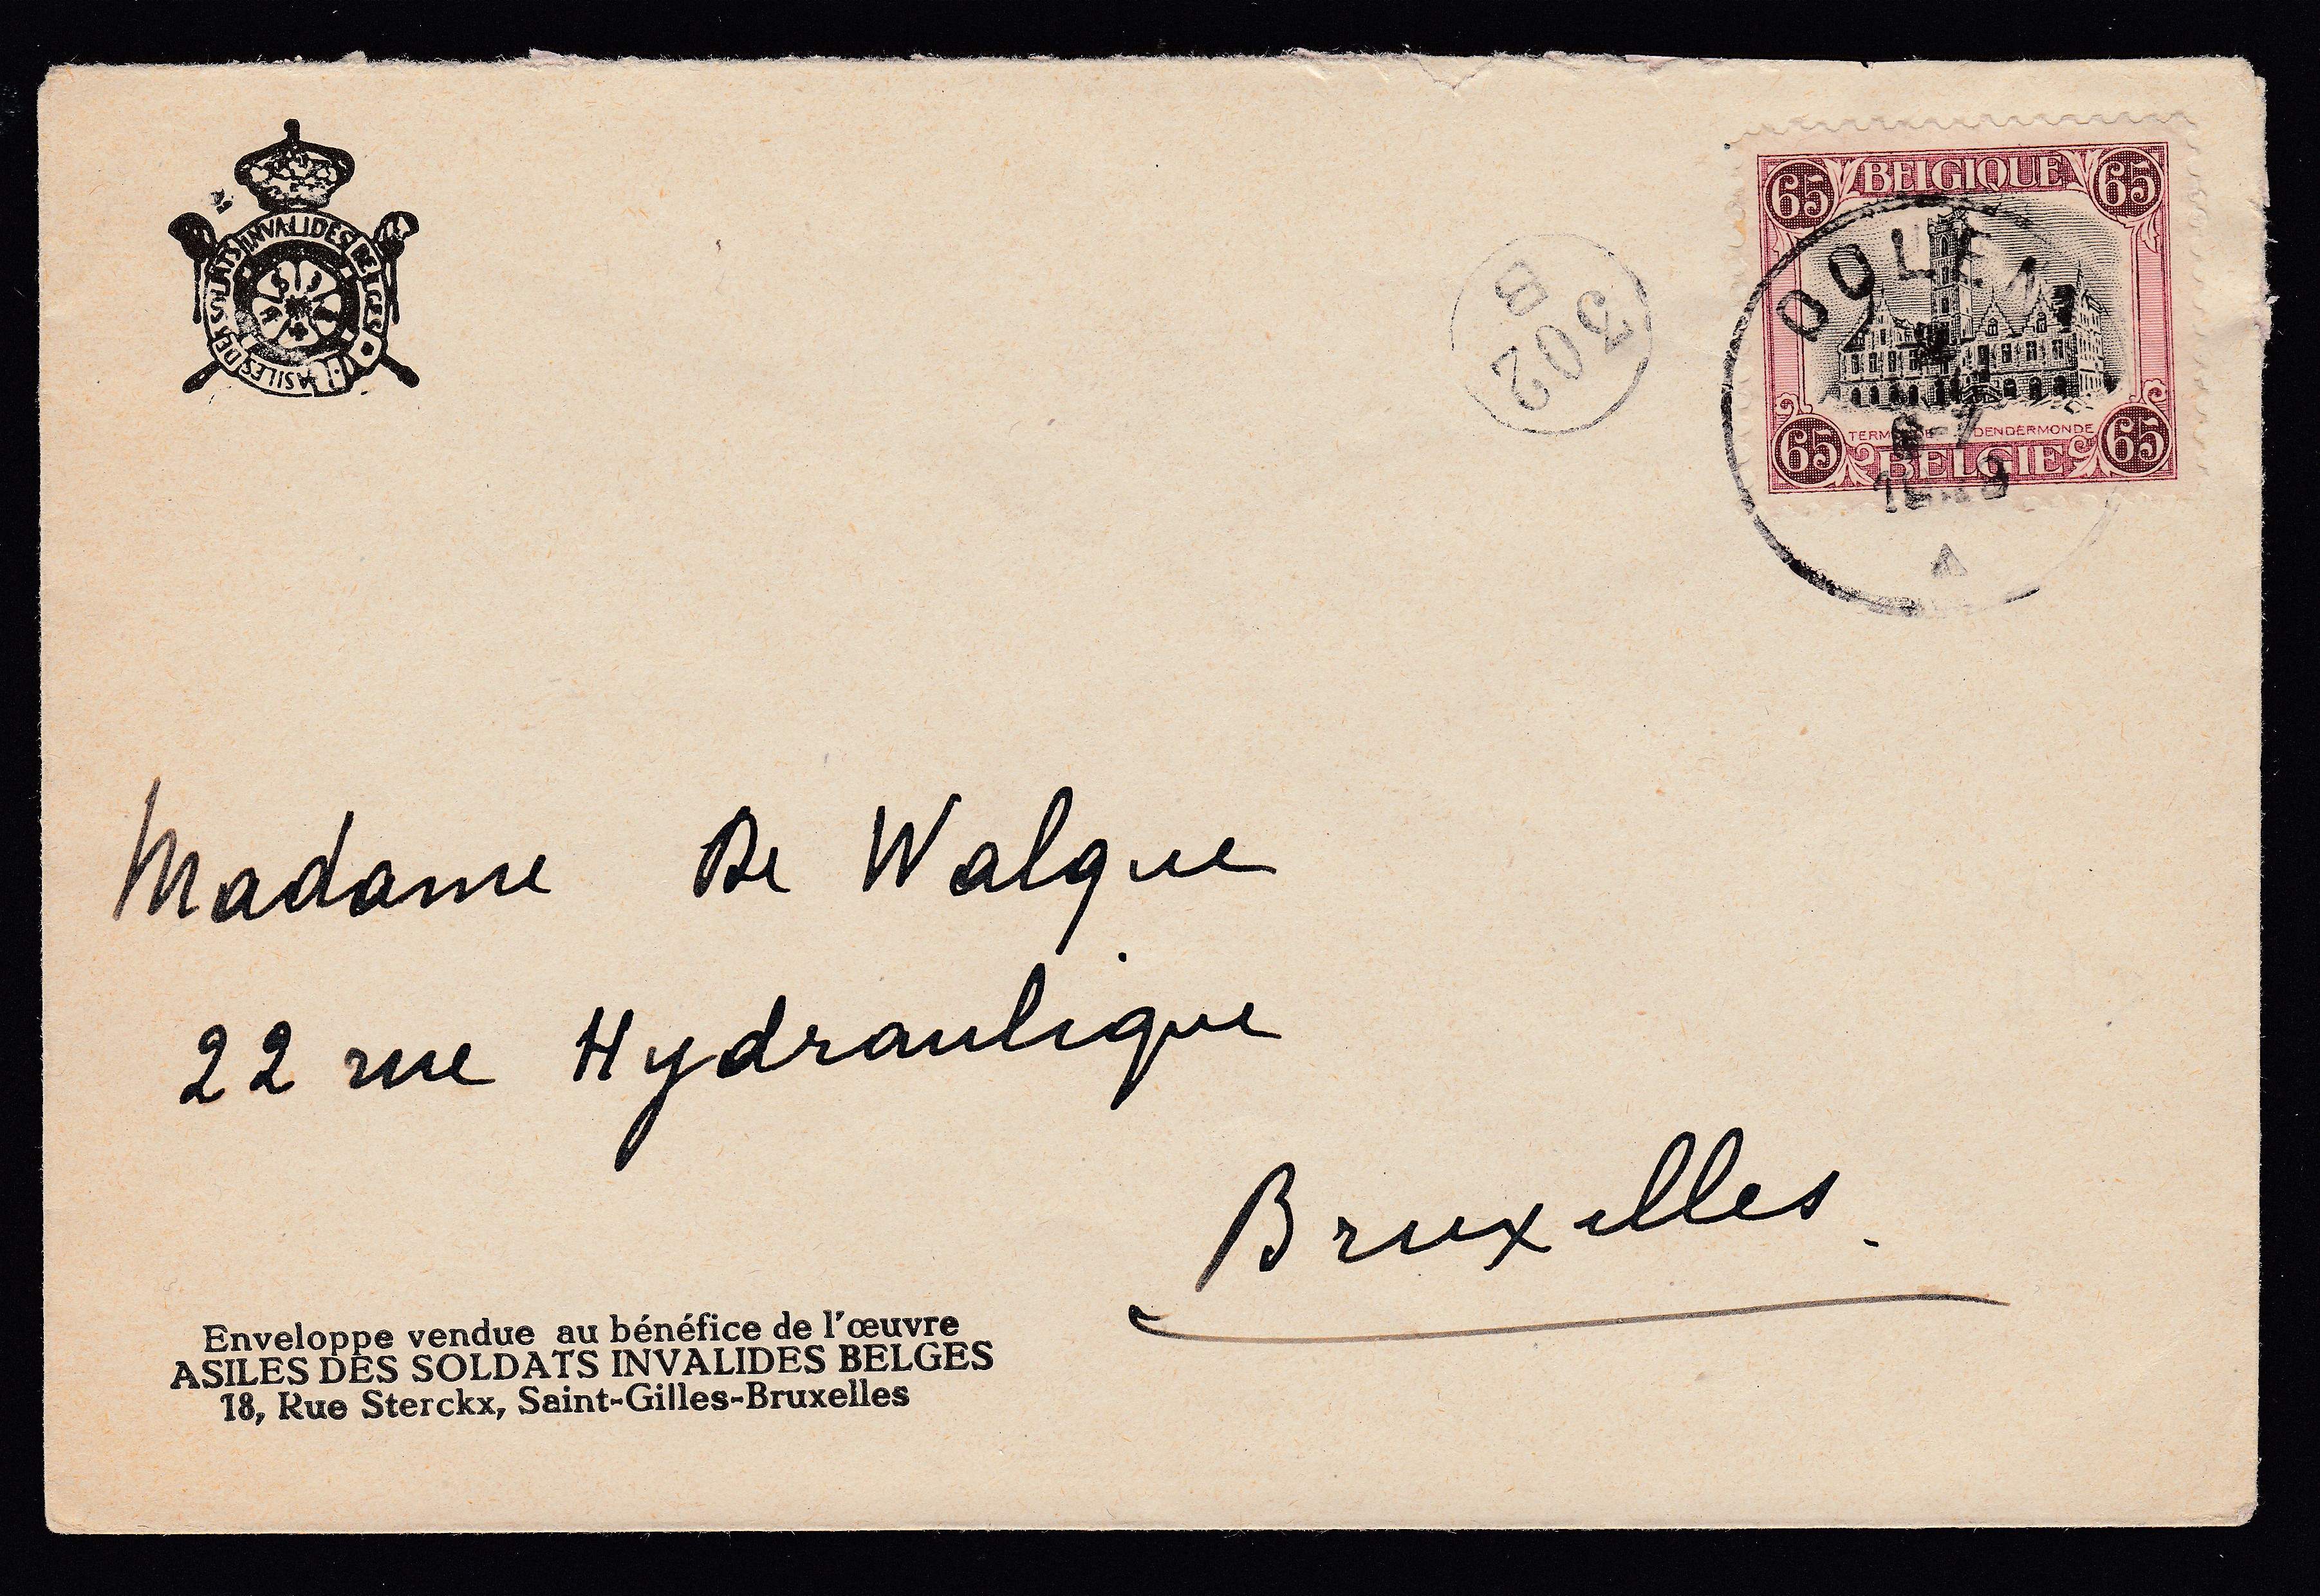 ASILES DES SOLDATS INVALIDES BELGES
302
B
65 BELGIQUE 65
DENDERMONDE
65 BELGIE 65
A
Madame De Walque
22 rue Hydraulique
Bruxelles.
Enveloppe vendue au bénéfice de l'œuvre
ASILES DES SOLDATS INVALIDES BELGES
18, Rue Sterckx, Saint-Gilles-Bruxelles